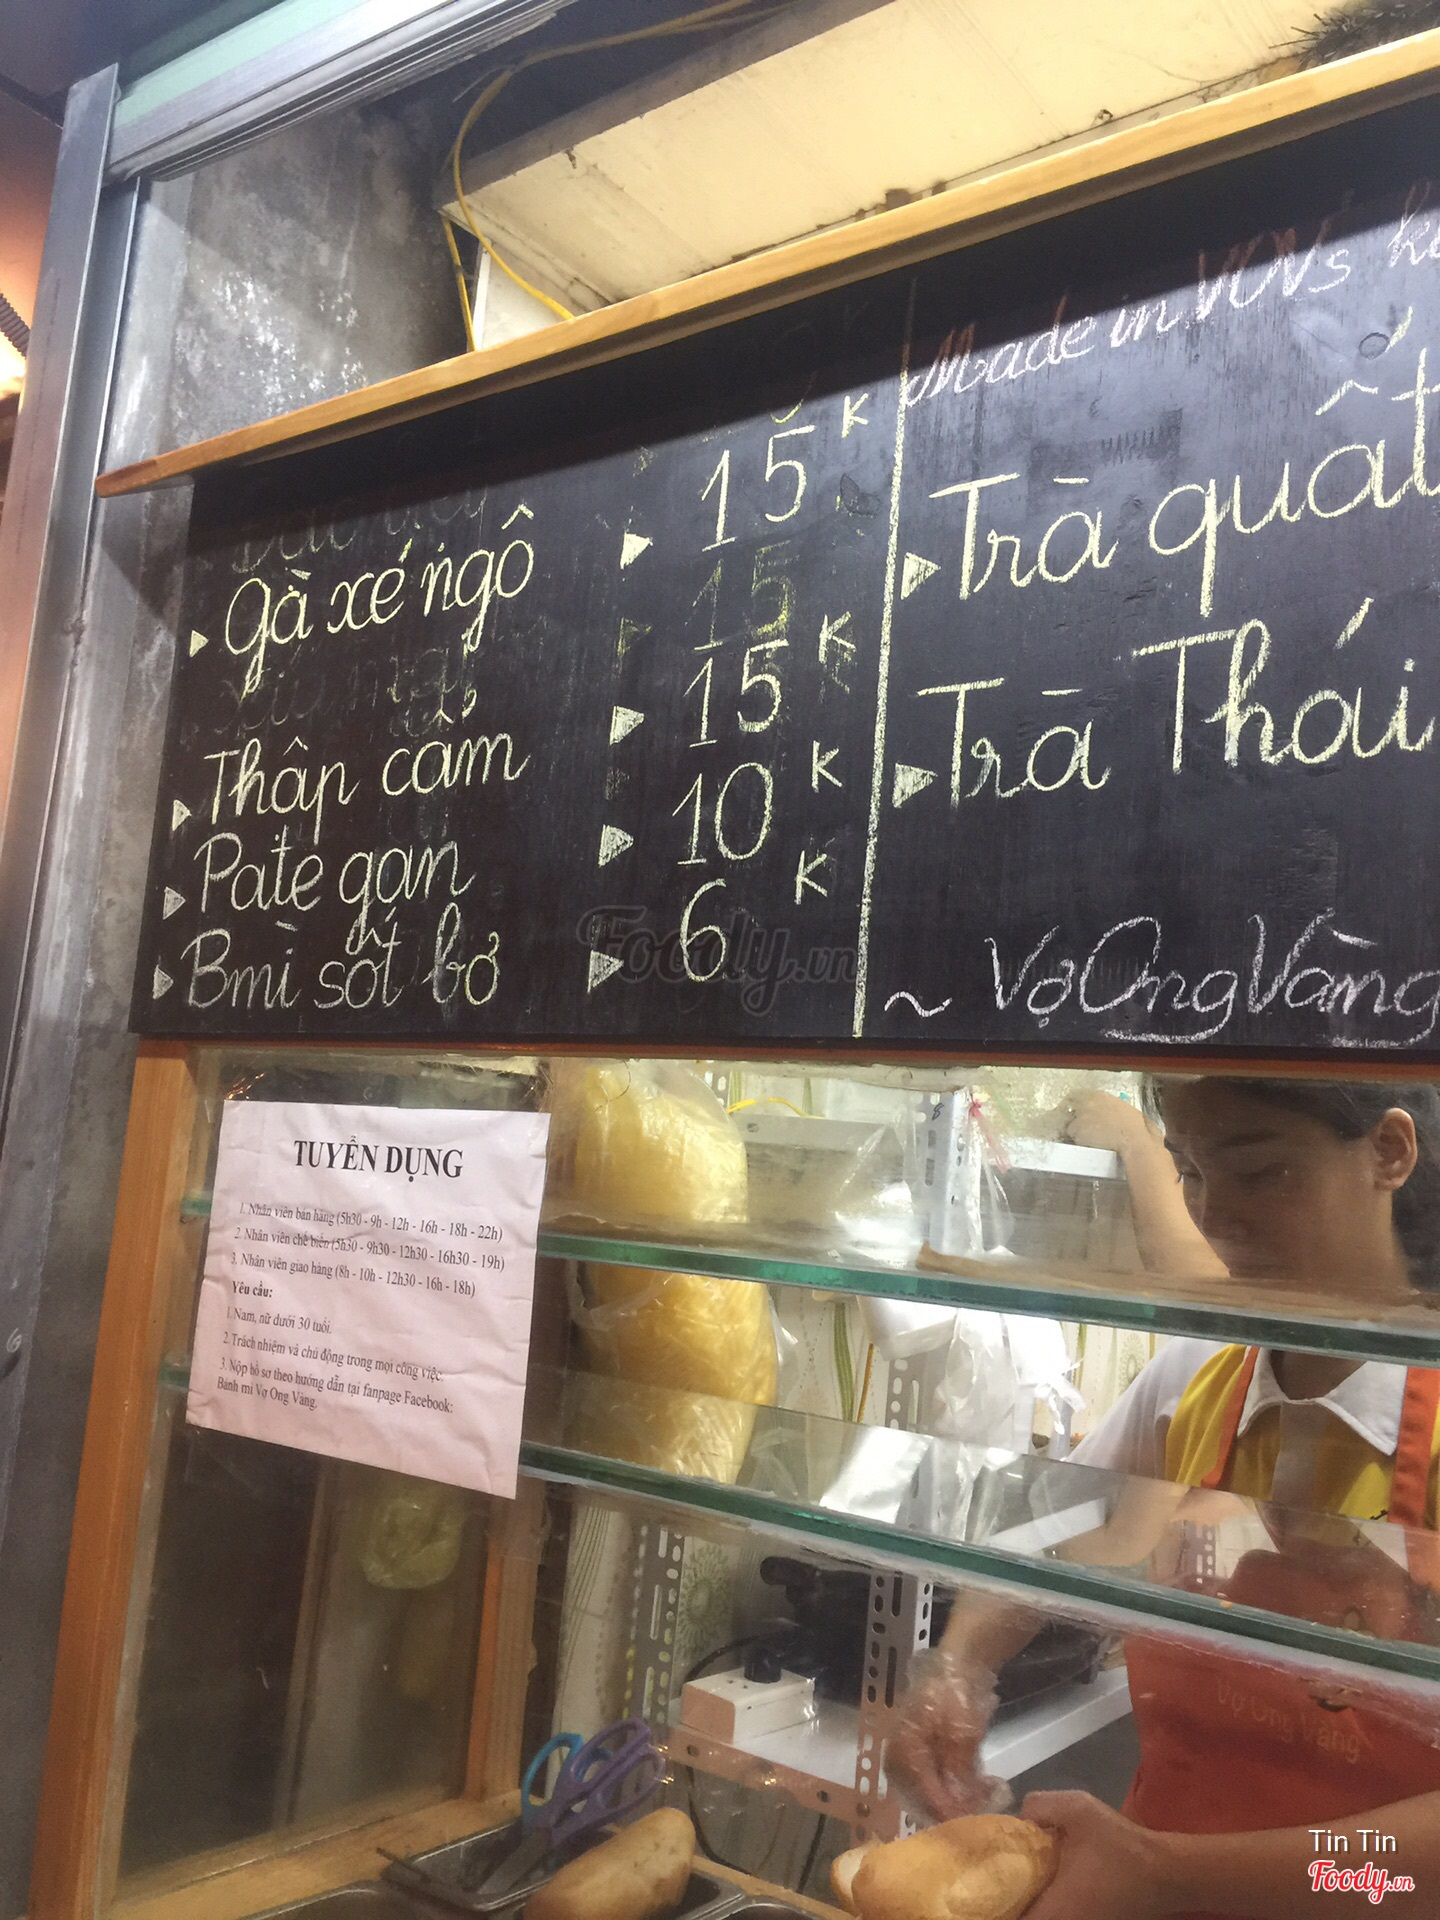 Gà xé ngô ▶ 15K
Thập cẩm ▶ 15K
Pate gan ▶ 10K
Bmì sốt bơ ▶ 6K
Made in VOVs
Trà quất
Trà Thái
~ Vợ Ong Vàng
Foody.vn
TUYỂN DỤNG
1. Nhân viên bán hàng (5h30 - 9h - 12h - 16h - 18h - 22h)
2. Nhân viên chế biến (5h30 - 9h30 - 12h30 - 16h30 - 19h)
3. Nhân viên giao hàng (8h - 10h - 12h30 - 16h - 18h)
Yêu cầu:
1. Nam, nữ dưới 30 tuổi.
2. Trách nhiệm và chủ động trong mọi công việc.
3. Nộp hồ sơ theo hướng dẫn tại fanpage Facebook:
Bánh mì Vợ Ong Vàng.
Vợ Ong Vàng
Tin Tin
Foody.vn